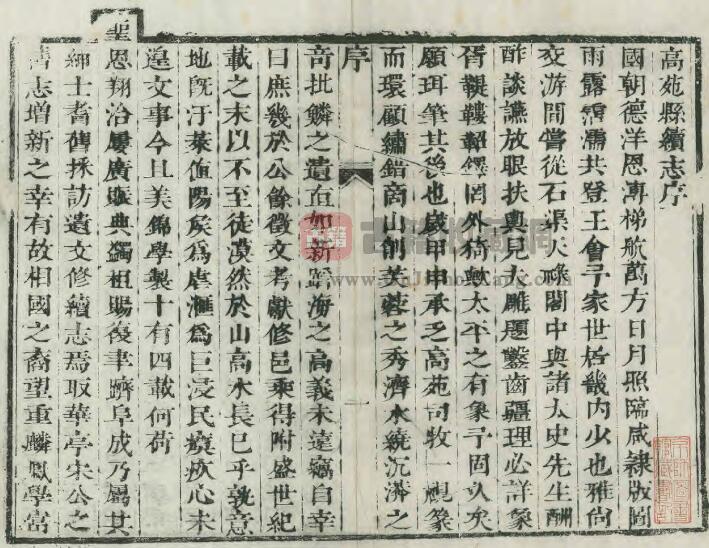 高苑縣續志序
國朝德洋恩溥梯航萬方日月照臨咸隸版圖
雨露霑濡共登王會予家世居畿內少也雅尙
交游間嘗從石渠天祿閣中與諸太史先生酬
酢談讌放眼扶輿見夫雕題鑿齒疆理必詳象
胥鞮鞻鞀鐸罔外猗歟太平之有象予固久矣
願珥筆其後也歲甲申承乏高苑司牧一視篆
而環顧繡錯商山削芙蓉之秀濟水繞沉漭之
序
奇批鱗之遺直如新蹈海之高義未遠竊自幸
曰庶幾於公餘徵文考獻修邑乘得附盛世紀
載之末以不至徒漠然於山高水長已乎孰意
地旣汙萊値陽矦爲虐滙爲巨浸民瘼疚心未
遑文事今且美錦學製十有四載何荷
聖
恩翔洽屢廣賑典獨租賜復聿躋阜成乃屬其
紳士耆舊採訪遺文修續志焉取華亭宋公之
舊志增新之幸有故相國之裔望重麟鳳學富
一